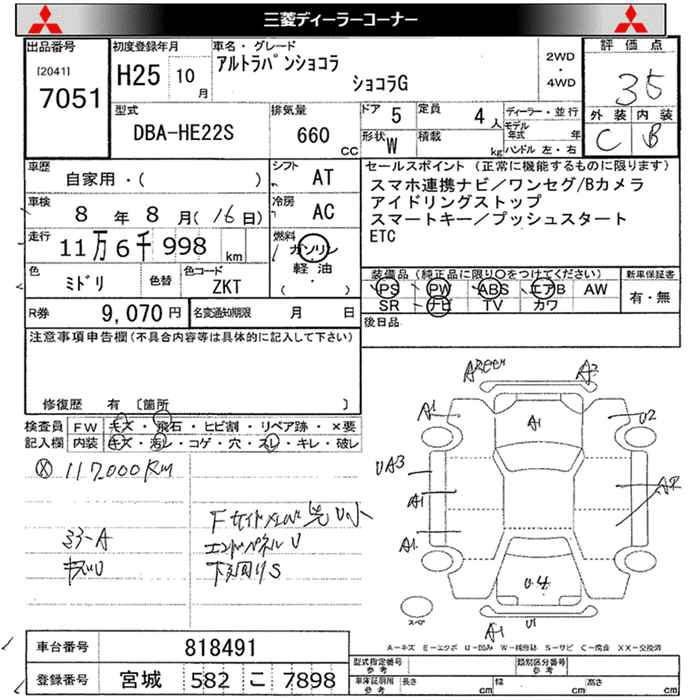 三菱ディーラーコーナー
出品番号
[2041]
7051
初度登録年月
H25 10月
車名・グレード
アルトラパンショコラ
ショコラG
2WD
・
4WD
評価点
35
外装 内装
C B
型式
DBA-HE22S
排気量
660 CC
ドア 5
定員 4人
形状 W
積載 kg
ディーラー・並行
モデル年式 年
ハンドル 左・右
車歴
自家用・( )
車検
8年 8月 (16日)
走行
11万6千998 km
色
ミドリ
色替
色コード
ZKT
シフト
AT
冷房
AC
燃料
ガソリン
軽油
( ・ )
セールスポイント (正常に機能するものに限ります)
スマホ連携ナビ/ワンセグ/Bカメラ
アイドリングストップ
スマートキー/プッシュスタート
ETC
装備品 (純正品に限り○をつけてください)
PS PW ABS エアB AW
SR ナビ TV カワ
新車保証書
有・無
後日品
R券
9,070円
名変通知期限 月 日
注意事項申告欄(不具合内容等は具体的に記入して下さい)
修復歴 有 〔箇所 〕
検査員
記入欄
FW キズ・飛石・ヒビ割・リペア跡・×要
内装 キズ・汚レ・コゲ・穴・スレ・キレ・破レ
117,000Km
ミラーA
キズU
エンドパネルU
下廻りS
A1
U2
A1
UA3
A1
A2
A1
U4
A1
U1
スペア
A-キズ E-エクボ U-凹み W-補修跡 S-サビ C-腐食 XX-交換済
車台番号
818491
登録番号
宮城 582 こ 7898
型式指定番号
参考
類別区分番号
参考
車庫証明用
参考
長さ cm
幅 cm
高さ cm